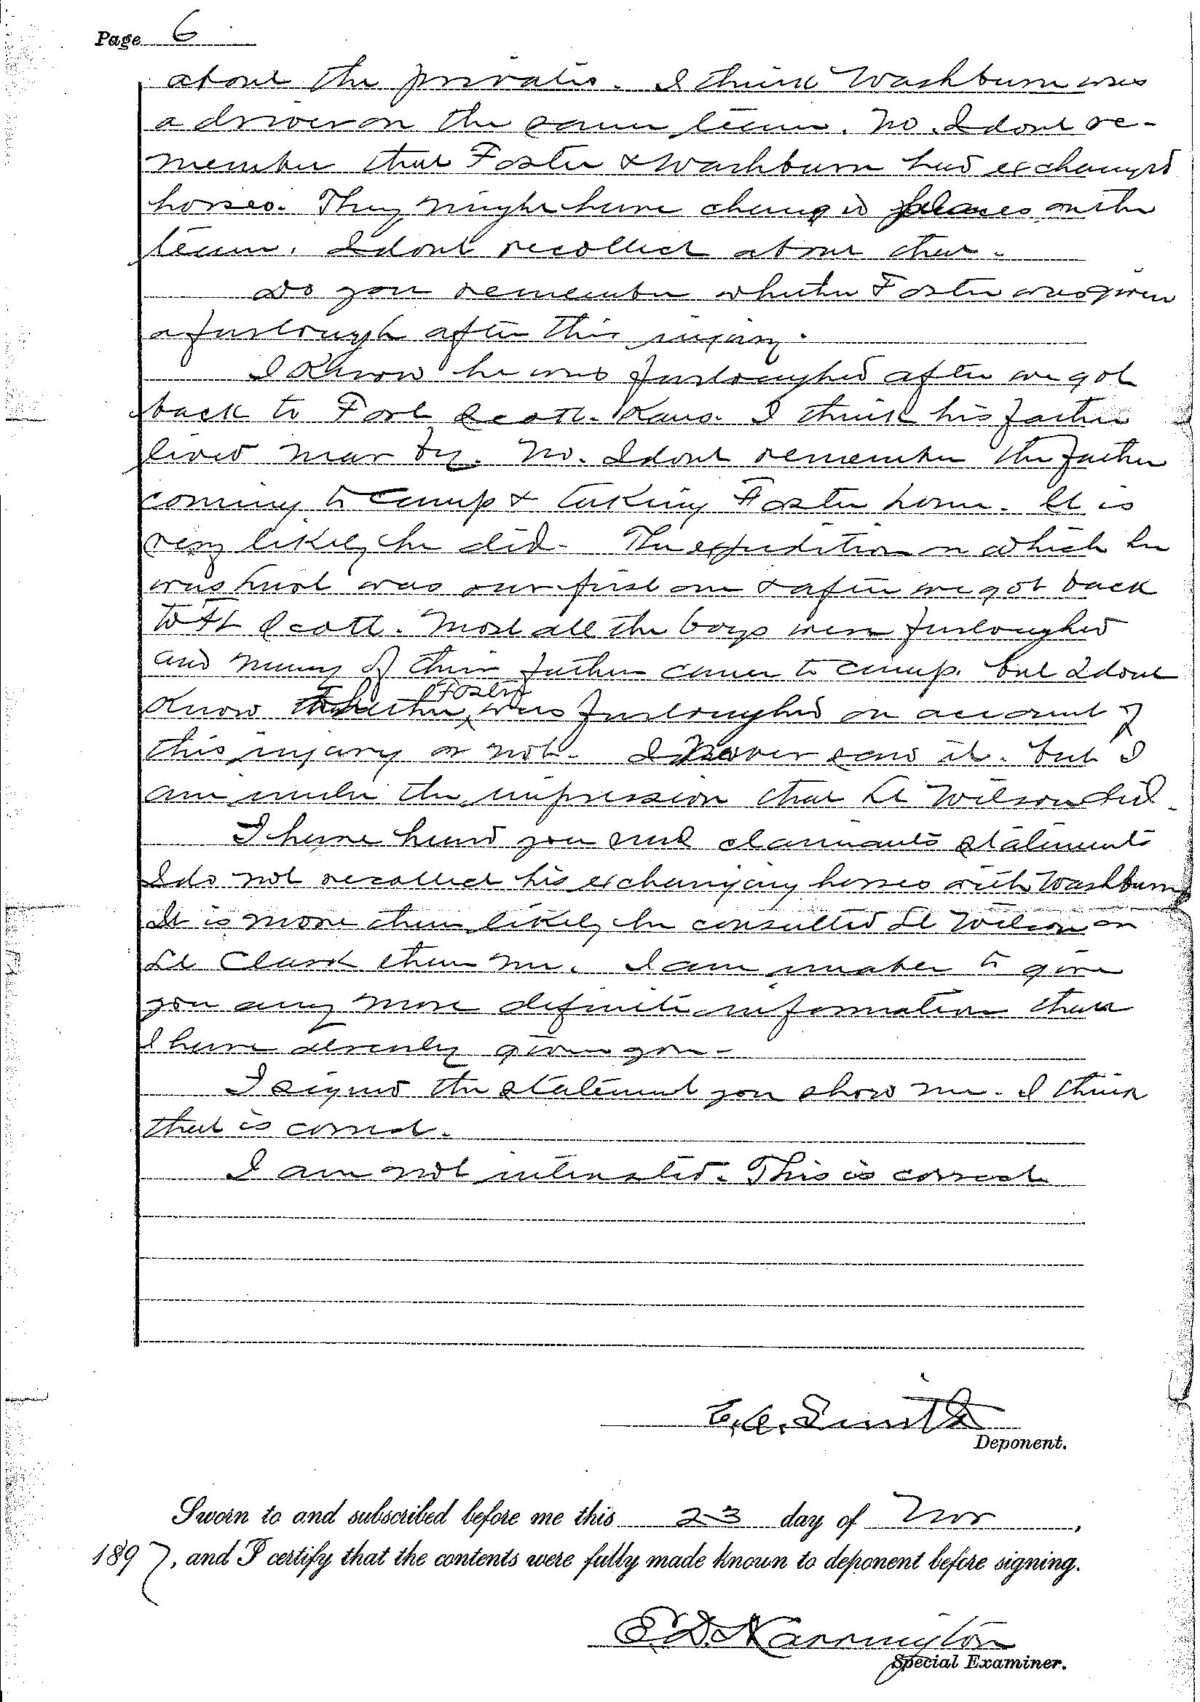 Page 6
about the privates. I think Washburn was
a driver on the same team. No. I dont re-
member that Foster & Washburn had exchanged
horses. They might have changed places on the
team. I dont recollect about that.
Do you remember whether Foster was given
a furlough after this injury.
I know he was furloughed after we got
back to Fort Scott. Kans. I think his father
lived near by. No. I dont remember the father
coming to camp & taking Foster home. It is
very likely he did. The expedition on which he
was hurt was our first one & after we got back
to Ft Scott. Most all the boys were furloughed
and many of their fathers came to camp. but I dont
know whether Foster was furloughed on account of
this injury or not. I never saw it. but I
am under the impression that Lt Wilson did.
I have heard you read claimants statements
I do not recollect his exchanging horses with Washburn
It is more than likely he consulted Lt Wilson or
Lt Clark than me. I am unable to give
you any more definite information than
I have already given you-
I signed the statement you show me. I think
that is correct.
I am not interested. This is correct
Smith
Deponent.
Sworn to and subscribed before me this 23 day of Nov,
1897, and I certify that the contents were fully made known to deponent before signing.
E.D. Harrington
Special Examiner.